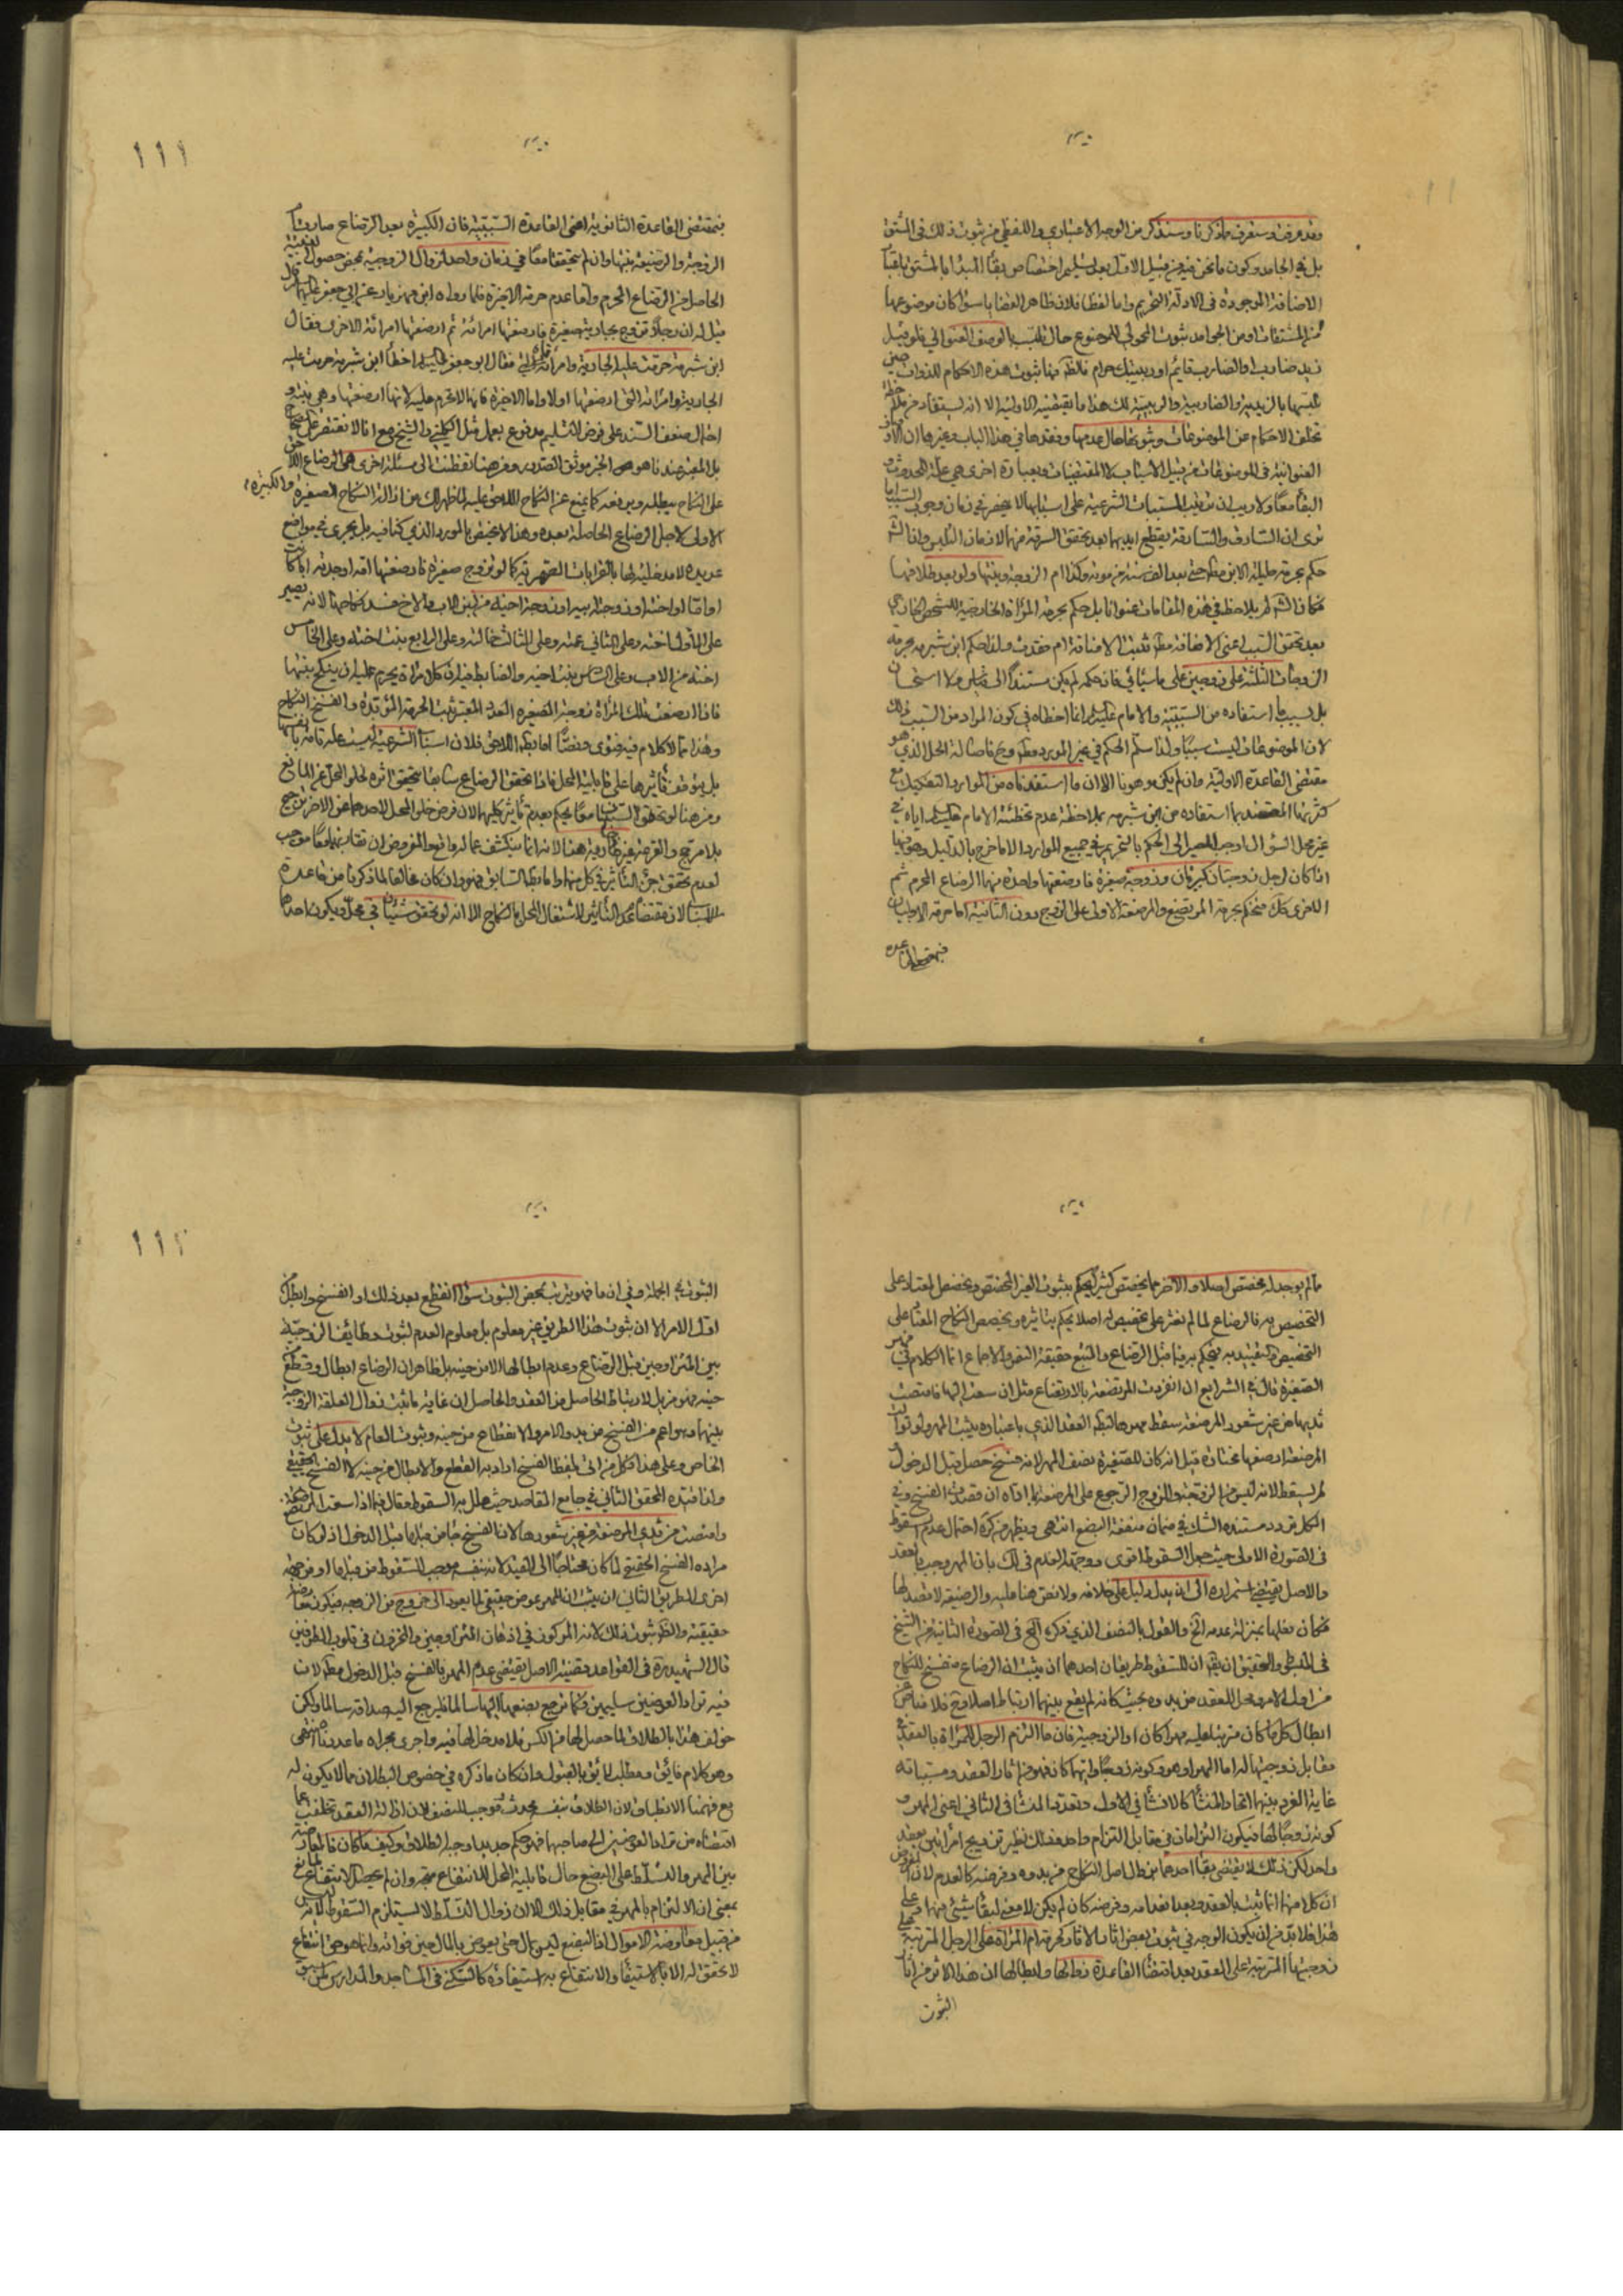 وقد عرفت وستعرف ماذكرنا وسنذكر من الوجه الاعتباري واللفظي من ثبوت ذلك في المشتق
بل في الجامد وكون مانحن فيه من قبيل الاول
الاضافة الموجودة في الادلة التحريم واما لفظا فلان ظاهر القضايا سواء كان موضوعها
من المشتقات او من الجوامد ثبوت المحمولي للموضوع حال تلبسه بالوصف العنواني فلو قيل
زيد ضارب او الضارب قائم او ربيبتك حرام فالظ منها ثبوت هذه الاحكام للذوات حين
تلبسها بالزيدية والضاربية والربيبية لك هذا ما يقتضيه الاولية الا انه يستفاد من
تخلف الاحكام عن الموضوعات وثبوتها حال عدمها ونقدها في هذا الباب وغيرها ان
العنوانية في الموضوعات من قبيل الاسباب لا المقتضيات وبعبارة اخرى هي علة الحدوث و
البقاء معا ولا ريب ان ترتب المسببات الشرعية على اسبابها لا ينحصر في زمان وجود السبب اما
ترى ان السارق والسارقة يقطع ايديهما بعد تحقق السرقة منهما لا زمان التلبس وانما
حكم بحرمة حليلة الابن مط حتى بعد الف سنة من موته وكذا ام الزوجة وبنتها ولو بعد طلاقها
فكان الشارع لم يلاحظ في هذه المقامات عنوانا بل حكم بحرمة المرأة الخارجية للشخص الخارجي
بعد تحقق السبب اعني الاضافة مط بقيت الاضافة ام فقدت ولذا حكم ابن شبرمة بحرمة
الزوجات الثلثة على زوجهن على ما سيأتي فان حكمه لم يكن مستندا الى قياس ولا استحسان
بل لسبب ما استفاده من السببية والامام عليه السلام انما اخطاه في كون المراد من السبب ذلك
لان الموضوعات ليست سببا ولذا سلم الحكم في غير المورد
مقتضى القاعدة الاولية وان لم يكن وهونا الا ان ما استفدناه من الموارد التفكيك مع
كثرتها المعتضد بما استفاده من ابن شبرمة بملاحظة عدم تخطئة الامام عليه السلام اياه في
غير محل السؤال اوجب المصير الى الحكم بالتحريم في جميع الموارد الا ما خرج بالدليل وهو فيما
اذا كان لرجل زوجتان كبيرتان وزوجة صغيرة فارضعتها واحدة منهما الرضاع المحرم ثم
الاخرى كك فنحكم بحرمة المرتضع والمرضعة الاولى على الزوج دون الثانية اما حرمة الاوليان
فبمقتضى القاعدة
١١١
فبمقتضى القاعدة الثانوية اعني القاعدة السببية فان الكبيرة بعد الرضاع صارت ام
الزوجة والرضيعة بنتها وان لم تتحققا معا في زمان واحد لزوال الزوجية بمحض حصول البنتية
الحاصل من الرضاع المحرم واما عدم حرمة الاخيرة فلما رواه ابن مهزيار عن ابي جعفر عليه السلام قال
قيل له ان رجلا تزوج بجارية صغيرة فارضعتها امرأته ثم ارضعتها امرأته الاخرى فقال
ابن شبرمة حرمت عليه الجارية وامرأتاه فقال ابو جعفر عليه السلام اخطأ ابن شبرمة حرمت عليه
الجارية وامرأته التي ارضعتها اولا واما الاخيرة فانها لا تحرم عليه لانها ارضعتها وهي بنته و
احتمال ضعف السند على فرض التسليم مدفوع بعمل مثل الكليني والشيخ مع انا لا نقتصر على الصحاح
بل المعتبر عندنا هو هو الخبر موثوق الصدور ومن هنا تفطنت الى مسئلة اخرى هي الرضاع اللاحق
على النكاح يبطله ويرفعه كما يمنع عن النكاح اللاحق عليه لما ظهر لك من ازالة النكاح الصغيرة والكبيرة
الاولى لاجل الرضاع الحاصلة بعده وهذا لا يختص بالمورد الذي كنا فيه بل يجري في مواضع
عديدة لا مدخلية لها بالقرابات الصهرية كما لو تزوج صغيرة فارضعتها امه او جدته اما كانت
او اما او اخته او زوجة ابيه او زوجة اخيه من لبن الاب والاخ فسد نكاحها لانه يصير
على الاول اخته وعلى الثاني عمته وعلى الثالث خالته وعلى الرابع بنت اخته وعلى الخامس
اخته من الاب وعلى السادس بنت اخيه والضابط فيه ان كل امرأة يحرم عليه ان ينكح بنتها
فاذا ارضعت تلك المرأة زوجته الصغيرة العدد المعتبر ثبت الحرمة المؤبدة وانفسخ النكاح
وهذا مما لا كلام فيه فتوى ونصا اما بطلان اللاحق فلان اسباب الشرعية ليست علة تامة بانفسها
بل يتوقف تأثيرها على قابلية المحل فاذا تحقق الرضاع سابقا يتحقق اثره لخلو المحل عن المانع
ومن هنا لو تحقق السببان معا يحكم بعدم تأثير كليهما لان فرض خلو المحل لاحدهما عن الاخر ترجيح
بلا مرجح والقرعة غير جارية هنا لانه انما يكشف عما له واقع والمفروض ان تقارنهما معا موجب
لعدم تحقق جزء التأثير في كل منهما واما بطلان السابق فهو وان كان مخالفا لما ذكرنا من قاعدة
الاسباب لان مقتضاه عدم التأثير لاشتغال المحل بالنكاح الا انه لو تحقق شيئان في محل ويكون احدهما
مالم يوجد له مخصص اصلا والاخر مما يخصص كثيرا يحكم بثبوت الغير المخصص ويخصص المعتاد على
التخصيص به فالرضاع لما لم نعثر على تخصيص له اصلا يحكم بتأثيره ويخصص النكاح المعتاد على
التخصيص والتقييد به فيحكم برفعه قبل الرضاع والمتبع حقيقة النص والاجماع انما الكلام في مهر
الصغيرة قال في الشرايع ان انفردت المرتضعة بالارتضاع مثل ان سعت اليها فامتصت
ثديها من غير شعور المرضعة سقط مهرها لبطلان العقد الذي باعتباره يثبت المهر ولو تولت
المرضعة ارضاعها مختارة قيل انه كان للصغيرة نصف المهر لانه فسخ حصل قبل الدخول
لم يسقط لانه ليس من الزوجة وللزوج الرجوع على المرضعة بما اداه ان قصدت الفسخ وفي
الكل تردد مستنده الشك في ضمان منفعة البضع انتهى ويظهر من كرة احتمال عدم السقوط
في الصورة الاولى حيث جعل السقوط اقوى ووجه العدم في لك بان المهر وجب بالعقد
والاصل يقتضي استمراره الى ان يدل دليل على خلافه ولا نص هنا عليه والرضيعة لا قصد لها
فكان فعلها بمنزلة عدمه الخ والقول بالنصف الذي ذكره في الصورة الثانية من الشيخ
في المبسوط والتحقيق ان يقال ان للسقوط طريقان احدهما ان يثبت ان الرضاع مفسخ للنكاح
من اول الامر ومحل للعقد من بدوه بحيث كانه لم يقع بينهما ارتباط اصلا وح فلا مناص عن
ابطال كل ما كان مترتبا عليه مهرا كان او الزوجية فان ما التزم الرجل للمرأة بالعقد في
مقابل زوجيتها له اما المهر او هو وكونه زوجا وايهما كان فهو من اثار العقد ومسبباته
غاية الفرق بينهما اتحاد المنشأ كالانشاء في الاول وتعدد المنشأ في الثاني اعني المهر و
كونه زوجا لها فيكون التزامان في مقابل التزام واحد فذلك نظير تزويج امرأتين بعقد
واحد لكن ذلك لا يقتضي بقاء احدهما بطلان اصل النكاح من بدوه وفرضه كالعدم لان المفروض
ان كلا منهما انما ثبت بالعقد وبعد انعدامه وفرضه كان لم يكن لا معنى لبقاء شيئ منهما وعلى
هذا فلا بد من ان يكون الوجه في ثبوت بعض اثار الاثار كحرمة ام المرأة على الرجل المترتبة على
زوجيتها المترتبة على العقد بعد اقتضاء القاعدة بطالها وابطالها ان هذا الاثر من اثار
الثبوت
١١٢
الثبوت في الجملة وفي ان ما فهو يترتب بمحض الثبوت سواء انقطع بعد ذلك او انفسخ وابطل من
اول الامر الا ان ثبوت هذا الطريق غير معلوم بل معلوم العدم لثبوت وظائف الزوجية
بين المتزاوجين قبل الرضاع وعدم ابطالها الا من حينه بل ظاهر ان الرضاع ابطال وقطع من
حينه فهو مزيل للارتباط الحاصل من العقد والحاصل ان غاية ما ثبت زوال العلقة الزوجية
بينهما وهو اعم من الفسخ من بدو الامر والانقطاع من حينه وثبوت العام لا يدل على ثبوت
الخاص وعلى هذا فكل من اتى بلفظ الفسخ اراد به القطع والابطال من حينه لا الفسخ الحقيقي
ولذا قيده المحقق الثاني في جامع المقاصد حيث علل به السقوط فقال فيما اذا سعت المرتضعة
وامتصت من ثدي المرضعة من غير شعورها لان الفسخ جاء من قبلها قبل الدخول اذ لو كان
مراده الفسخ الحقيقي لما كان محتاجا الى التقييد لانه بنفسه موجب للسقوط من قبلها او من جهة
اخرى الطريق الثاني ان يثبت ان المهر عوض حقيقي لما يعود الى الزوج من الزوجة فيكون معاوضة
حقيقة والظ ثبوت ذلك لانه المركوز في اذهان المتزاوجين والمخزون في قلوب الطرفين
قال الشهيد ره في القواعد وقضية الاصل يقتضي عدم المهر بالفسخ قبل الدخول مط لان
فيه تراد العوضين سليمين فكما يرجع بضعها اليها سالما فليرجع اليه صداقه سالما ولكن
خولف هذا بالطلاق لما حصل لها من الكسر فلا مدخل لها فيه واجرى مجراه ما عددناه انتهى
وهو كلام فائق ومطلب لائق بالقبول وان كان ما ذكره في خصوص البطلان مما لا يكون له
مع فهمنا الانطباق لان الطلاق بنفسه محدث وموجب للنصف لان ازالة العقد تخلف عما
اقتضاه من تراد العوضين الى صاحبها فهو حكم جديد اوجبه الطلاق وكيف ما كان فالمعاوضة
بين المهر والتسلط على البضع حال قابلية المحل للانتفاع متجه وان لم يحصل الانتفاع لمانع
بمعنى ان الالتزام بالمهر في مقابل ذلك الا ان زوال التسلط لا يستلزم السقوط لانه ليس
من قبيل معاوضة الاموال اذ البضع ليس بمال حتى يعوض بالمال حين فواته وانما هو حق انتفاع
لا يحقق له الا بالاستيفاء والانتفاع به استيفاؤه كالسكنى في المساجد والمدارس